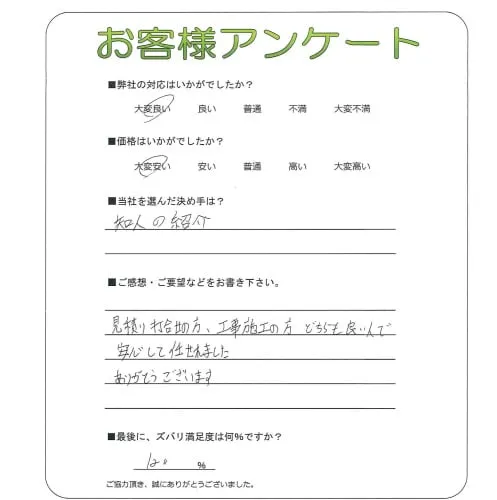 お客様アンケート
■弊社の対応はいかがでしたか？
大変良い 良い 普通 不満 大変不満
■価格はいかがでしたか？
大変安い 安い 普通 高い 大変高い
■当社を選んだ決め手は？
知人の紹介
■ご感想・ご要望などをお書き下さい。
見積り打合せの方、工事施工の方 どちらも良い人で
安心して任せれました
ありがとうございます
■最後に、ズバリ満足度は何％ですか？
120 ％
ご協力頂き、誠にありがとうございました。